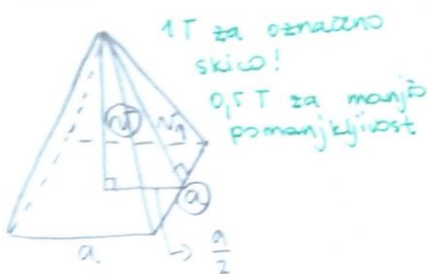 1T za označeno
skico!
0,5 T za manjšo
pomanjkljivost
v
v₁
a
a
a/2